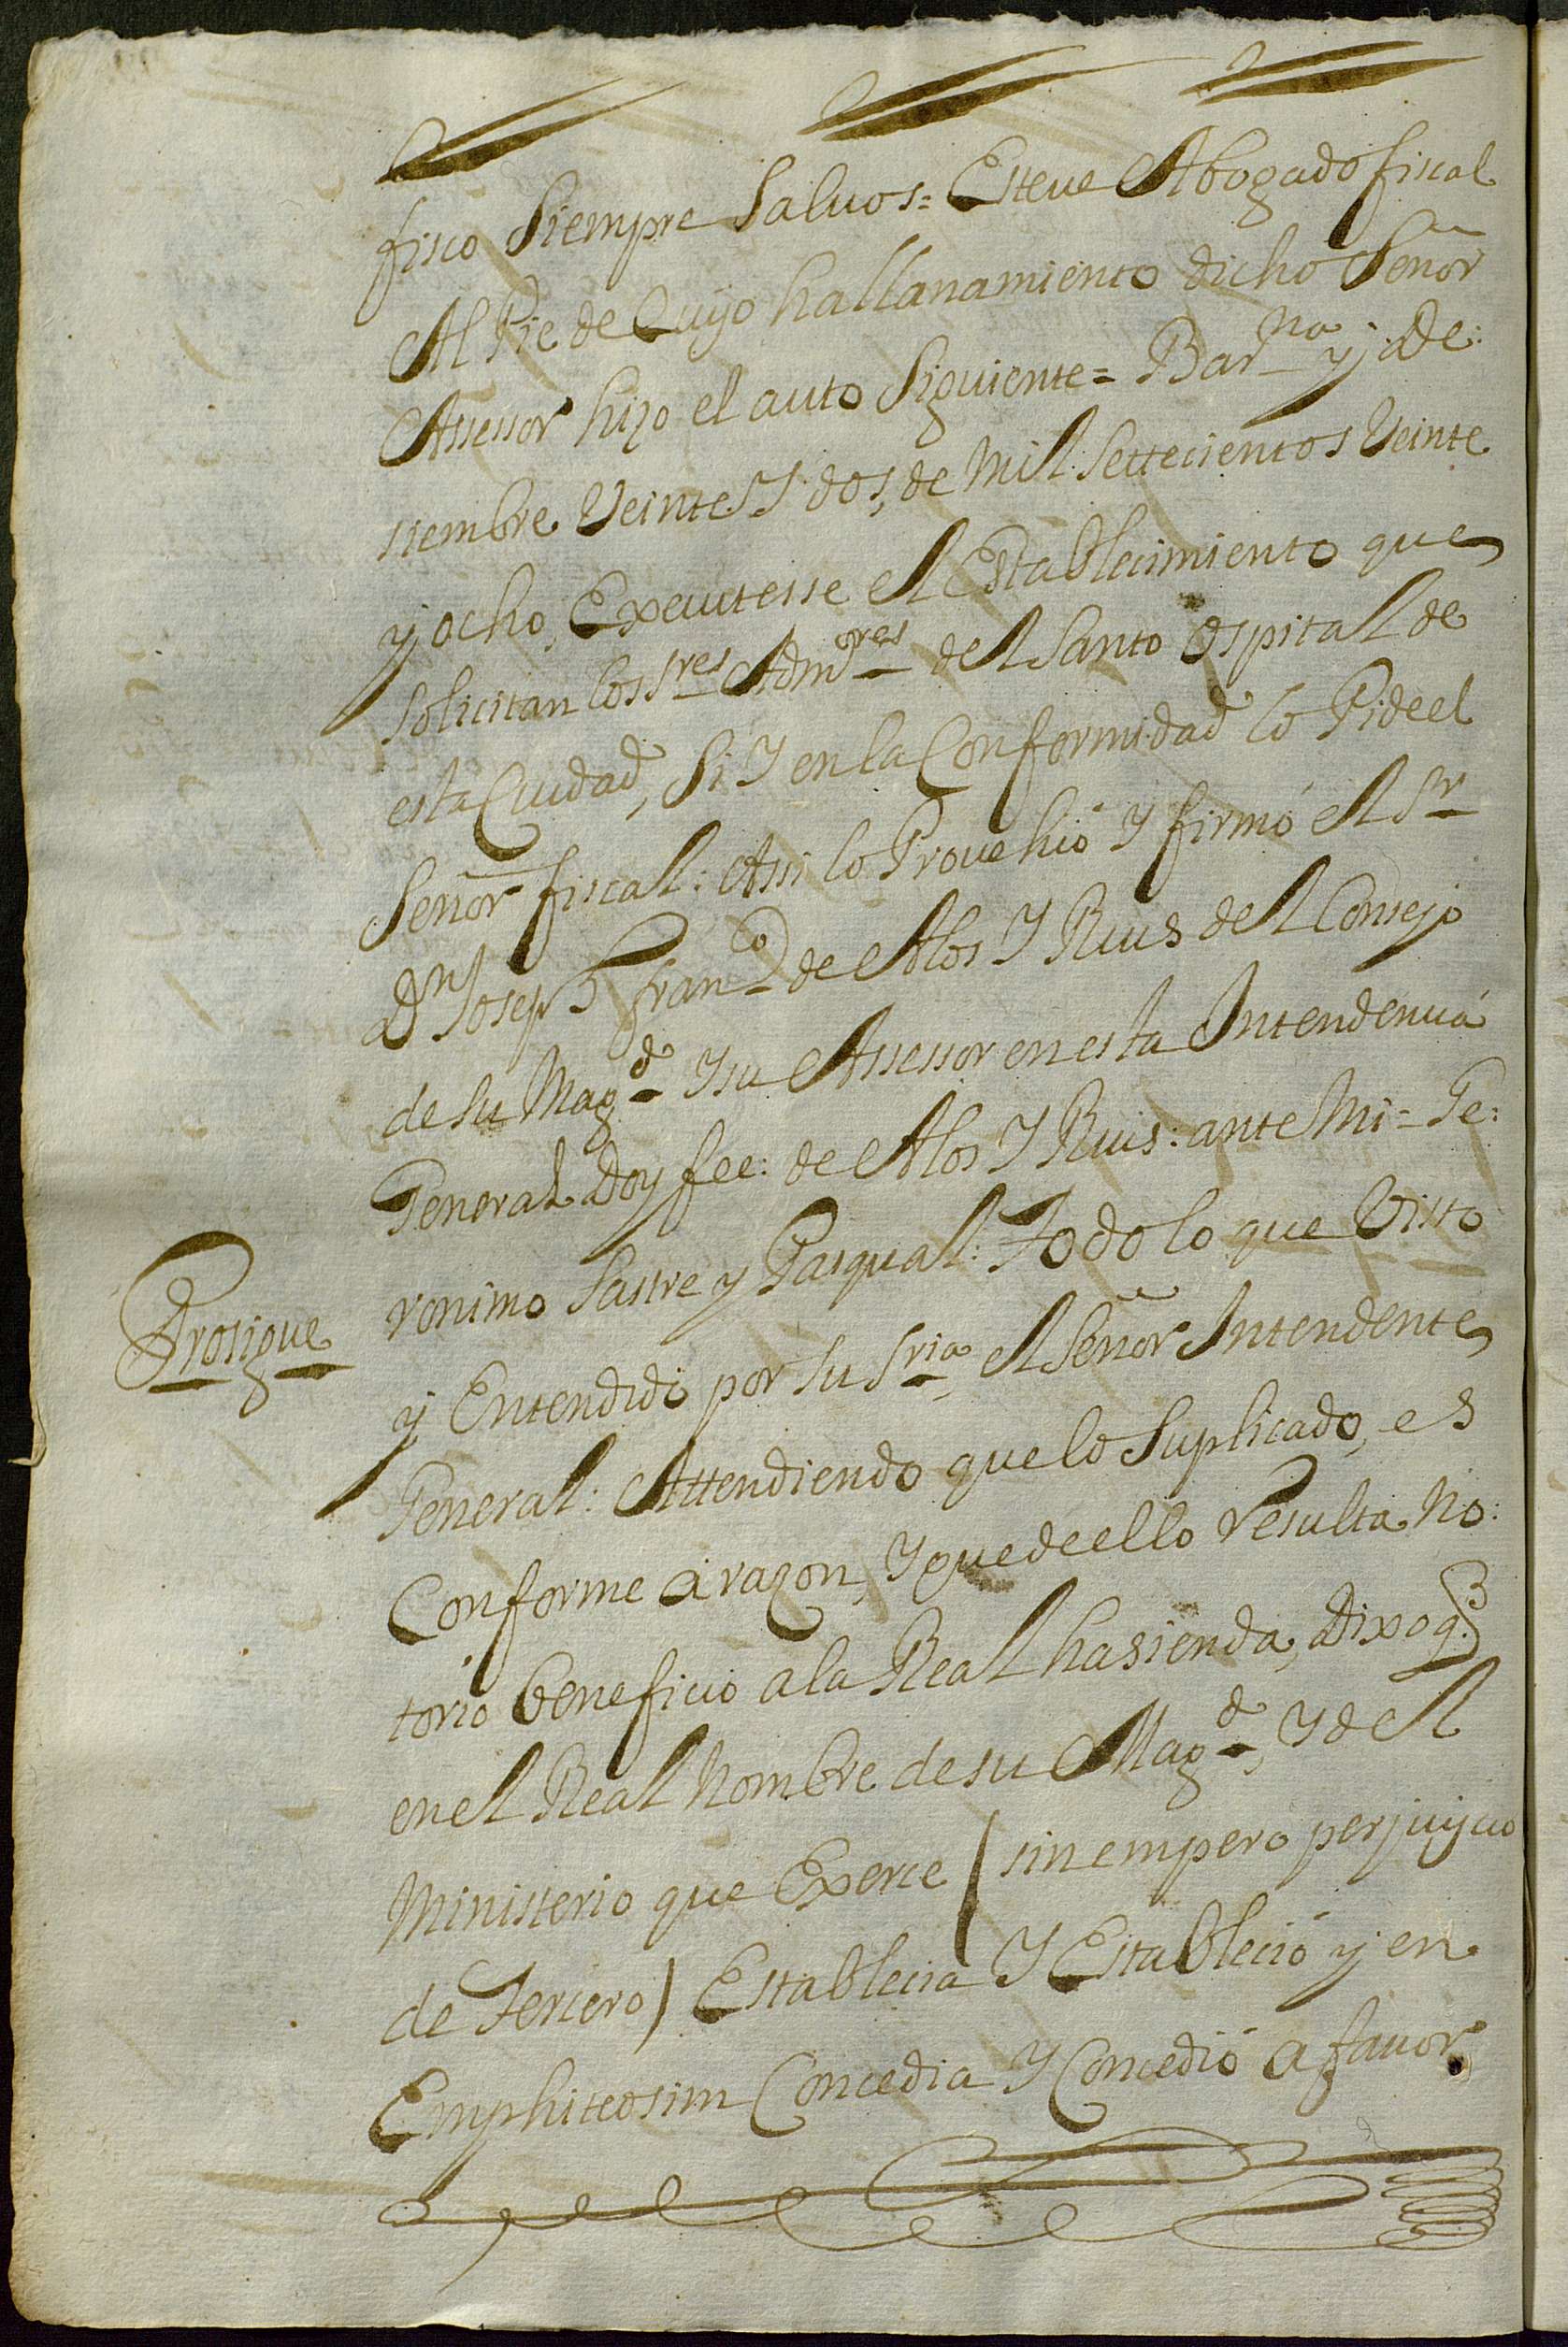 fisco Siempre Salvos = Esteve Abogado fiscal
Al Pie de Cuyo hallanamiento dicho Señor
Assessor hizo el auto Siguiente = Bar^na y De:
siembre Veinte Y dos, de Mil Settecientos Veinte
y ocho, Executesse el Establecimiento que
solicitan los S^res Adm^ores del Santo Ospital de
esta Ciudad, Si Y en la Conformidad lo Pide el
Señor fiscal: Assi lo Provehió Y firmó el S^r
D^n Joseph Fran^co de Alos Y Rius del Consejo
de Su Mag^d Y su Assessor en esta Intendencia
General Doy fee: de Alos Y Rius: ante Mi = Ge:
ronimo Sastre y Pasqual: Todo lo que Visto
Prosigue
y Entendido por su S^ria, el Señor Intendente
General: Attendiendo que lo Suplicado, es
Conforme á razon, Y que de ello resulta No:
torio beneficio a la Real hasienda, Dixo q.^e
en el Real Nombre de su Mag^d, Y del
Ministerio que Exerce (sin empero perjuycio
de Tercero) Establecia Y Estableció y en
Emphiteosim Concedia Y Concedió a favor